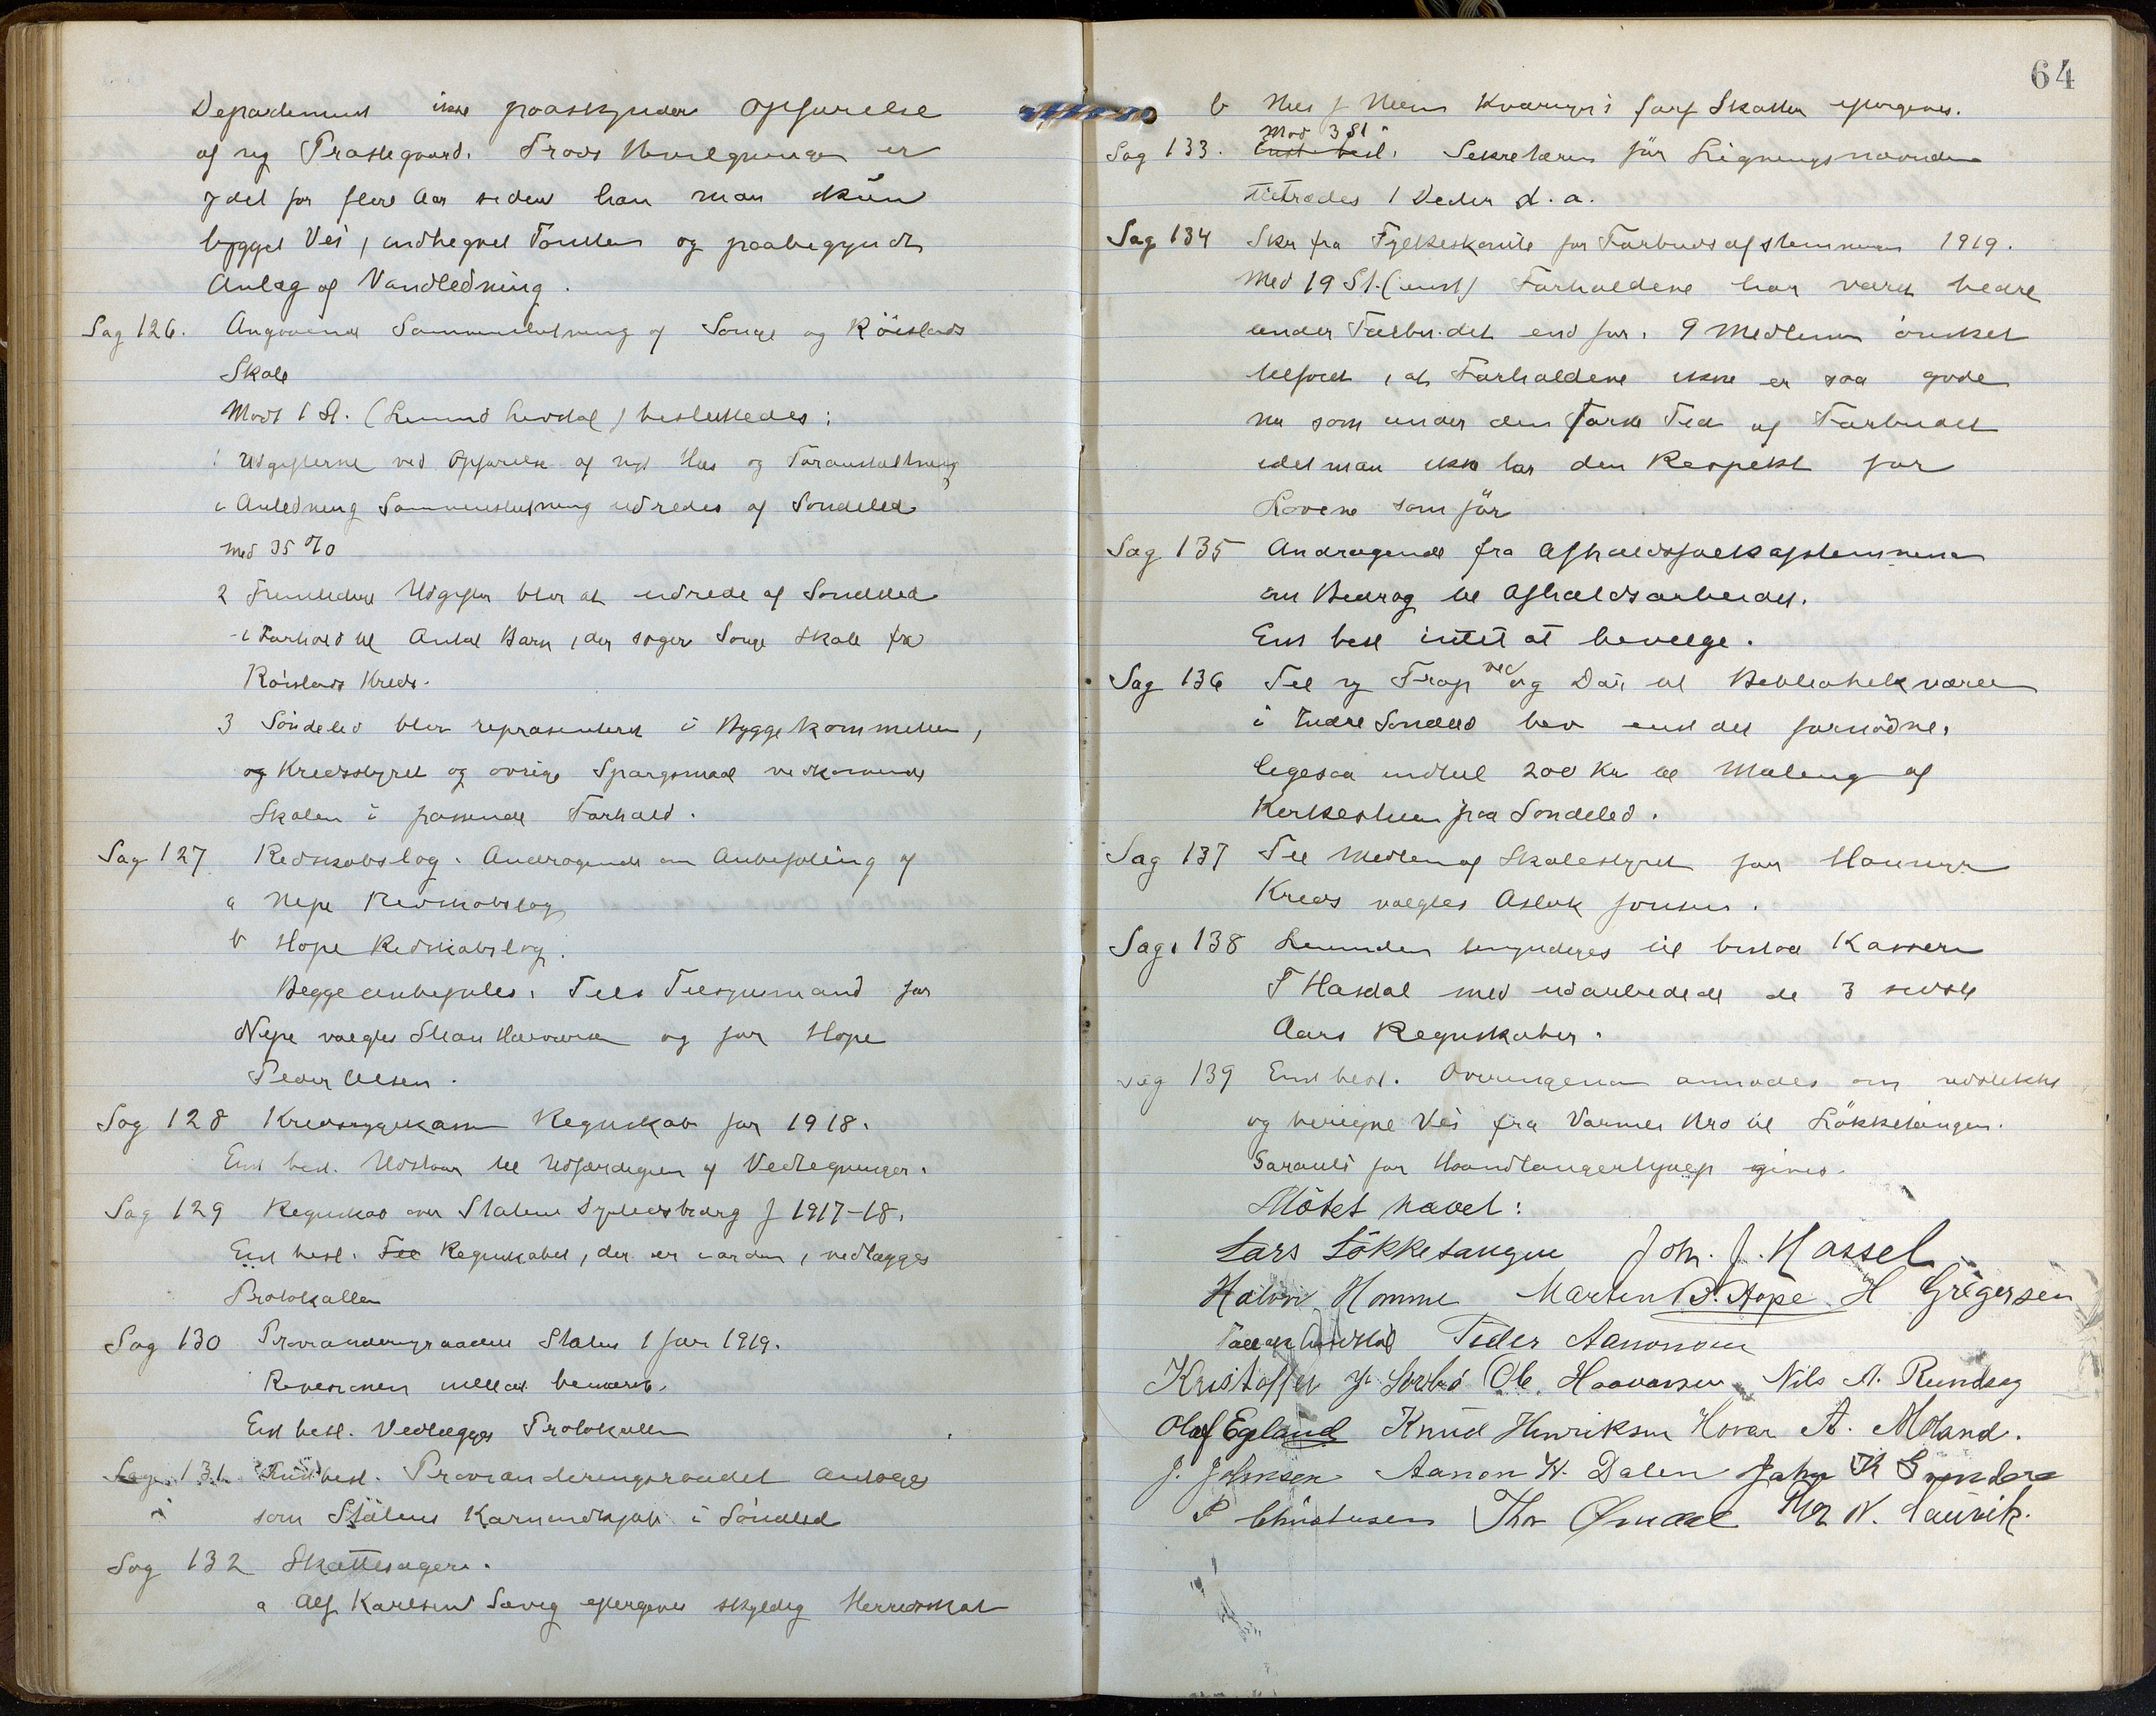 Departement ikke paaskynder Opførelse
af ny Præstegaard. Trods Bevilgningen er
for flere Aar siden har man kun
bygget Vei, indhegnet Tomten og paabegyndt
Anlæg af Vandledning.
Sag 126. Angaaende Sammenslutning af Songe og Röislands
Skole
Mod 1 St. (Amund Lindal) besluttedes:
1 Udgifterne ved Opførelse af nyt Hus og Foranstaltning
i Anledning Sammenslutning udredes af Söndeled
med 35 %
2 Fremtidige Udgifter blir at udrede af Söndeled
i Forhold til Antal Barn, der søger Songe Skole fra
Röislands Kreds.
3 Söndeled blir repræsenteret i Byggekommitteen,
og Kredsstyret og øvrige Spørgsmaal vedkommende
Skolen i passende Forhold.
Sag 127 Redskabslag. Andragende om Anbefaling af
a Nepe Redskabslag
b Hope Redskabslag.
Begge anbefales. Til Tilsynsmand for
Nepe vælges Haavorsen og for Hope
Peder Olsen.
Sag 128 Kredssygekassens Regnskab for 1918.
Enst besl. Udstaar til Udfærdigelse af Vedtegninger.
Sag 129 Regnskab over Statens Dyrtidsbidrag f 1917-18.
Enst besl. Regnskabet, der er i orden, vedlægges
Protokollen
Sag 130 Provianteringsraadets Status 1 Jan 1919.
Revisionen intet at bemærke.
Enst besl. Vedlægges Protokollen
Sag 131. Enst besl. Provianteringsraadet antages
som Statens Kornindkjøb i Söndeled
Sag 132 Skattesager.
a Alf Karlsen Sævig eftergives skyldig Herredsskat
64
b Nils J Kvernvik forf Skatter eftergives.
Mod 3 St
Sag 133. Enst besl. Sekretæren för Ligningsnævnden
tiltrædes 1 Deder d. a.
Sag 134 Skr fra Fylkeskomite for Forbudsafstemningen 1919.
Med 19 St. (enst) Forholdene har været bedre
under Forbudet end før. 9 Medlemmer önsket
tilföiet, at Forholdene ikke er saa gode
nu som under den første Tid af Forbudet
idet man ikke har den Respekt for
Lovene som för
Sag 135 Andragende fra Afholdsfolkafstemningen
om Bidrag til Afholdsarbeidet.
Enst besl intet at bevilge.
Sag 136 Til ny Trap ved og Dör til Bibliothekværelse
i Indre Söndeled bev enst det fornödne.
Ligesaa indtil 200 Kr til Maling af
Kirkestuen paa Söndeled.
Sag 137 Til Medlem af Skolestyret for
Kreds vælgtes Aslak Jensen.
Sag. 138 bemyndiges til bistaa Kasserer
T Hasdal med udarbeidede de 3 sidste
Aars Regnskaber.
Sag 139 Enst besl. Opsyngeneren anmodes om udstikke
og beregne Vei fra Varmes Kro til Lökketangen.
Garanti for Haandlangerhjælp gives.
Mötet hævet:
Lars Lökketangen Joh. J. Hassel
Halvor Homme Marten B. Hope H Gregersen
Peder Aanonsen
Kristoffer Ole Haavorsen Nils A. Rundsag
Olaf Egeland Knud Henriksen Hovar A. Moland.
J. Johnsen Aanon H. Dalen John K
P Christensen Thor Ømdal Thor N. Laüvik.